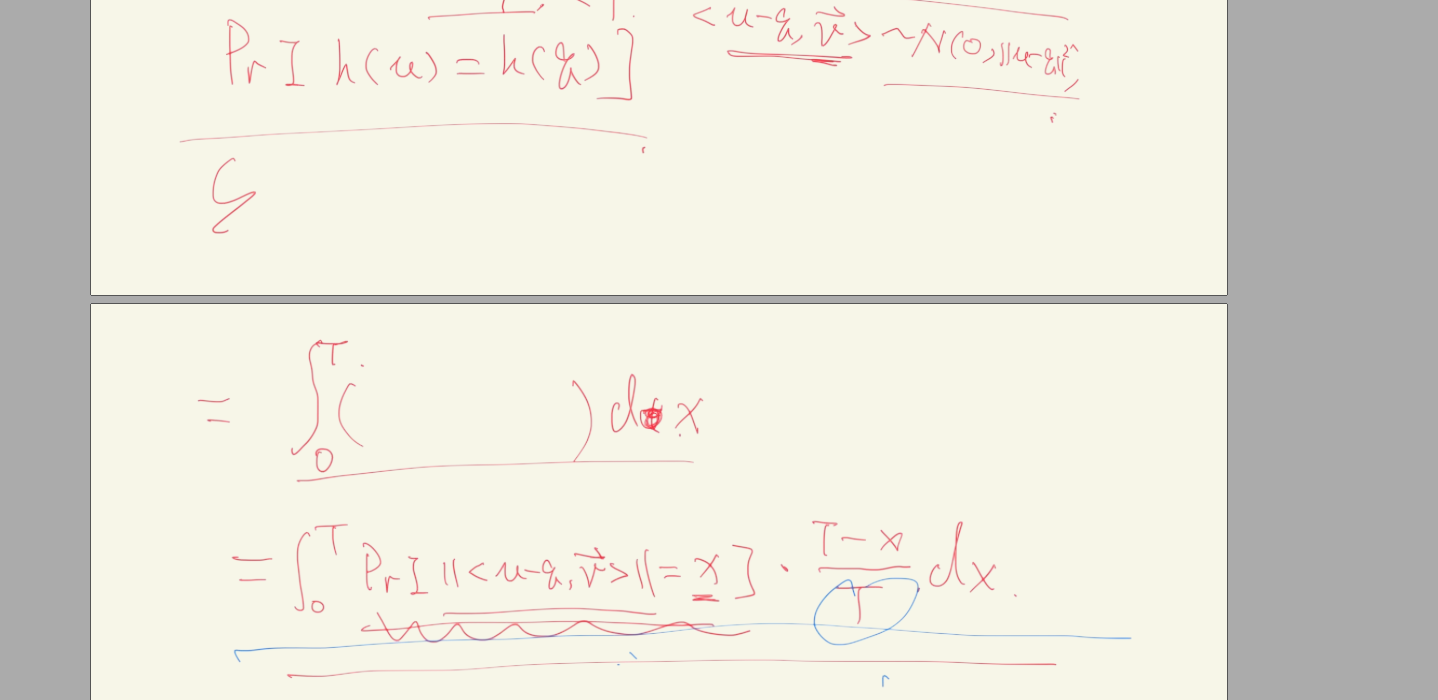 Pr[ h(u) = h(q) ]  <u-q, v⃗> ~ N(0, ||u-q||²),
= ∫₀ᵀ (  ) dx
= ∫₀ᵀ Pr[ ||<u-q, v⃗>|| = x ] · (T-x)/T dx.